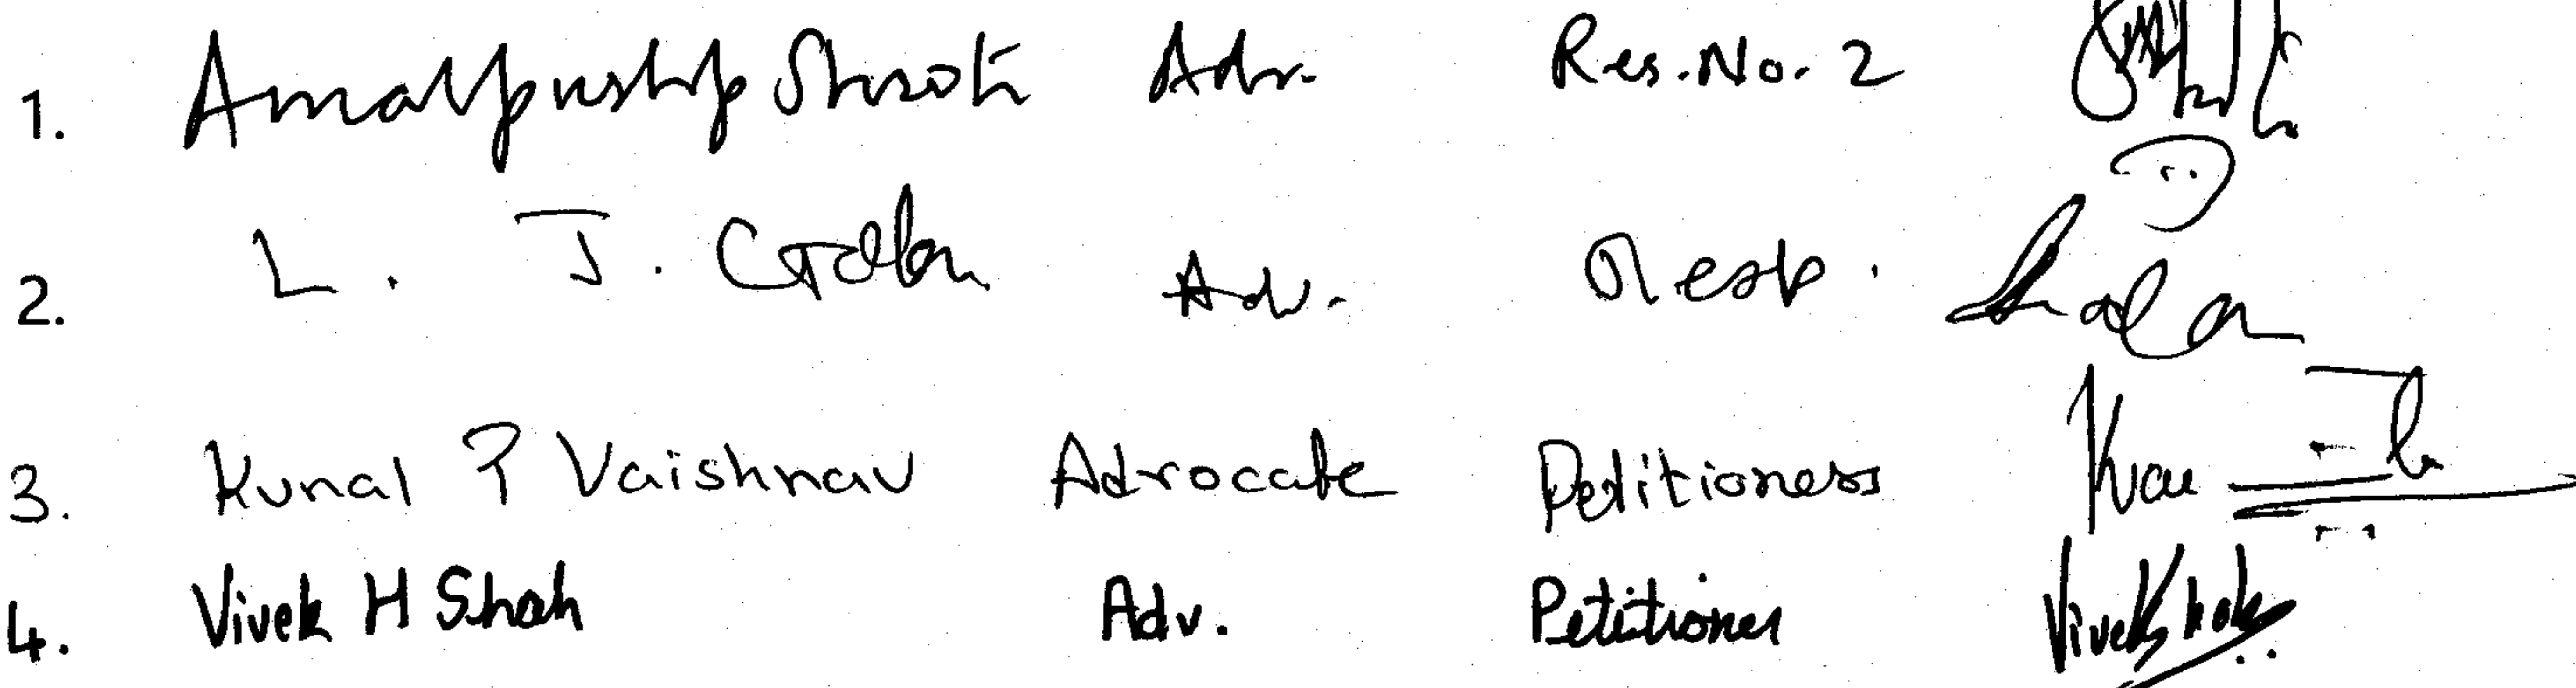 1. Amalpushp Shroti Adv. Res. No. 2
2. L. J. Adv. Resp.
3. Kunal P Vaishnav Advocate Petitioners
4. Vivek H Shah Adv. Petitioner VivekShah